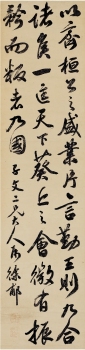 以齊桓公之盛業片言勤王則九合
諸侯一匡天下葵丘之會微有振
矜而叛者九國 子文二兄大人 徐郙